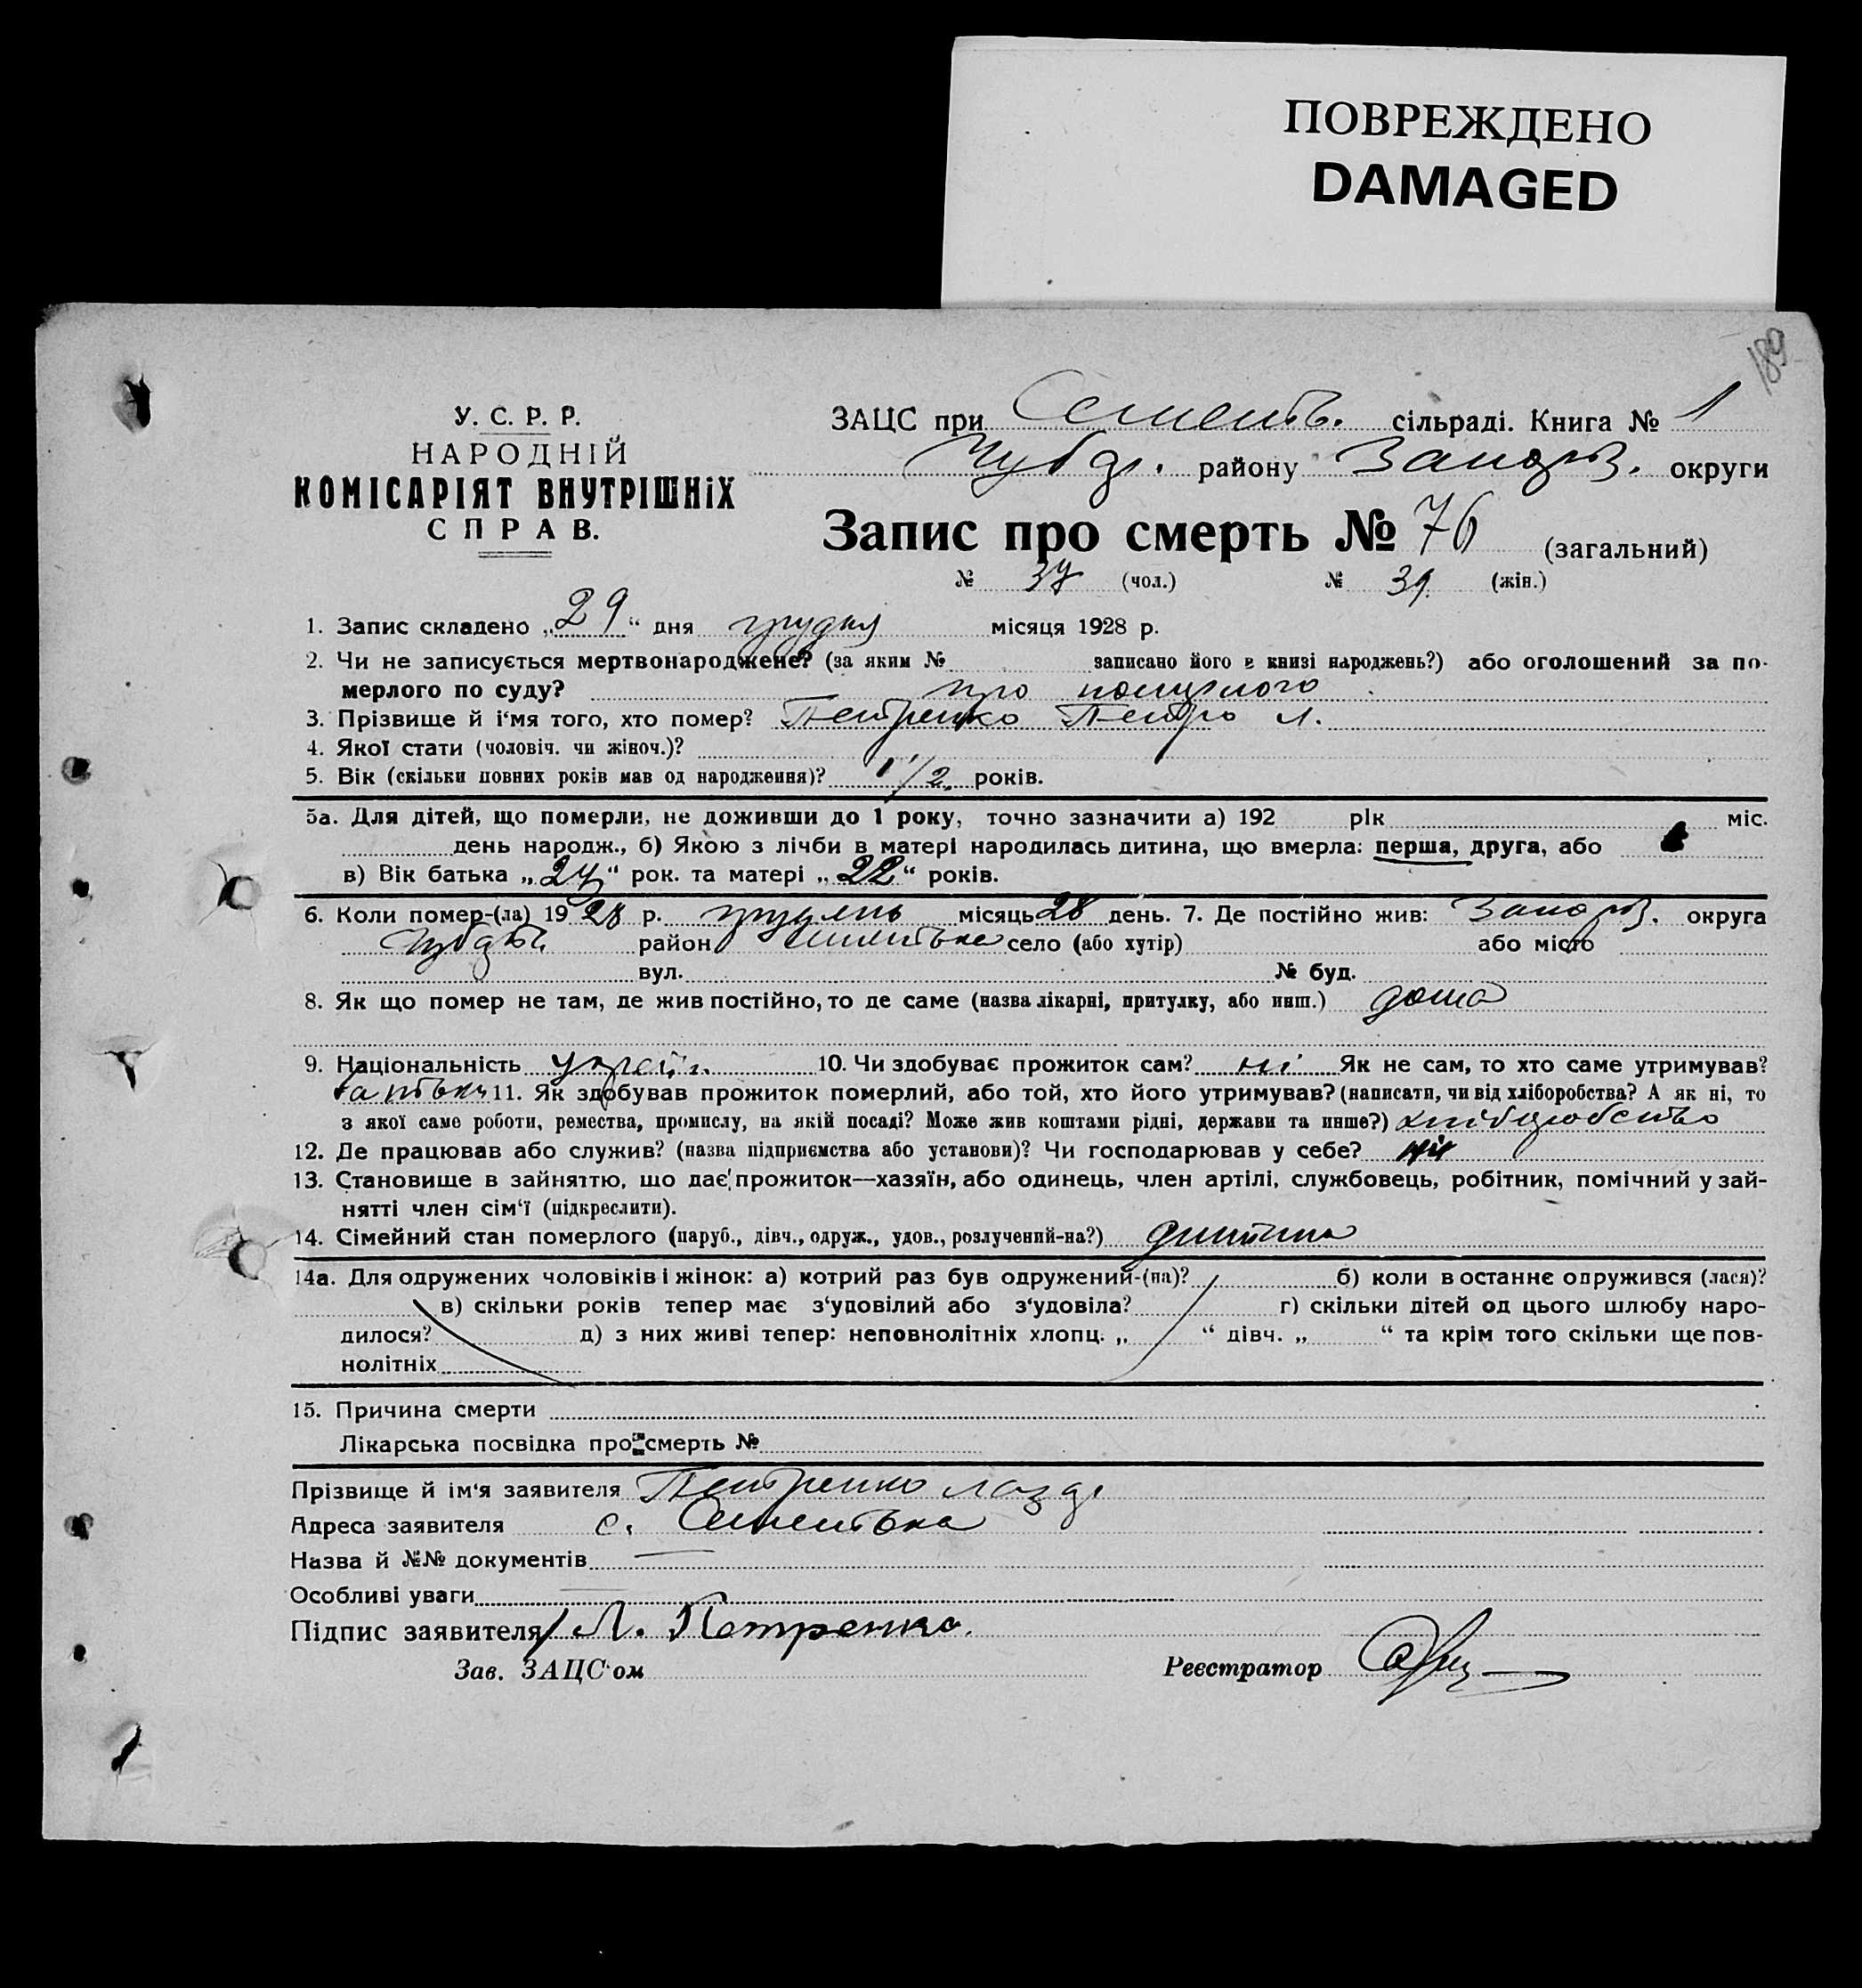 ПОВРЕЖДЕНО
DAMAGED
189
У. С. Р. Р.
НАРОДНІЙ
КОМІСАРІЯТ ВНУТРІШНіХ
СПРАВ.
ЗАЦС при Семент. сільраді. Книга № 1
Чубар. району Запоріз. округи
Запис про смерть № 76 (загальний)
№ 37 (чол.) № 39 (жін.)
1. Запис складено „29“ дня грудня місяця 1928 р.
2. Чи не записується мертвонароджене? (за яким № записано його в книзі народжень?) або оголошений за по-
мерлого по суду? про помершого
3. Прізвище й і'мя того, хто помер? Петренко Петро Л.
4. Якої стати (чоловіч. чи жіноч.)?
5. Вік (скільки повних років мав од народження)? 1/2 років.
5а. Для дітей, що померли, не доживши до 1 року, точно зазначити а) 192 рік міс.
день народж., б) Якою з лічби в матері народилась дитина, що вмерла: перша, друга, або
в) Вік батька „24“ рок. та матері „22“ років.
6. Коли помер-(ла) 1928 р. грудень місяць 28 день. 7. Де постійно жив: Запоріз. округа
район село (або хутір) або місто
вул. № буд.
8. Як що помер не там, де жив постійно, то де саме (назва лікарні, притулку, або инш.) дома
9. Національність україн. 10. Чи здобуває прожиток сам? ні Як не сам, то хто саме утримував?
батьки 11. Як здобував прожиток померлий, або той, хто його утримував? (написати, чи від хліборобства? А як ні, то
з якої саме роботи, ремества, промислу, на якій посаді? Може жив коштами рідні, держави та инше?) хліборобство
12. Де працював або служив? (назва підприємства або установи)? Чи господарював у себе? ні
13. Становище в зайняттю, що дає прожиток—хазяїн, або одинець, член артілі, службовець, робітник, помічний у зай-
нятті член сім'ї (підкреслити).
14. Сімейний стан померлого (паруб., дівч., одруж., удов., розлучений-на?) дитина
14а. Для одружених чоловіків і жінок: а) котрий раз був одружений-(на)? б) коли востаннє одружився (лася)?
в) скільки років тепер має з'удовілий або з'удовіла? г) скільки дітей од цього шлюбу наро-
дилося? д) з них живі тепер: неповнолітніх хлопц. „ “ дівч. „ “ та крім того скільки ще пов-
нолітніх
15. Причина смерти
Лікарська посвідка про смерть №
Прізвище й ім'я заявителя Петренко Лазар
Адреса заявителя с.
Назва й №№ документів
Особливі уваги
Підпис заявителя Л. Петренко.
Зав. ЗАЦС'ом Реєстратор